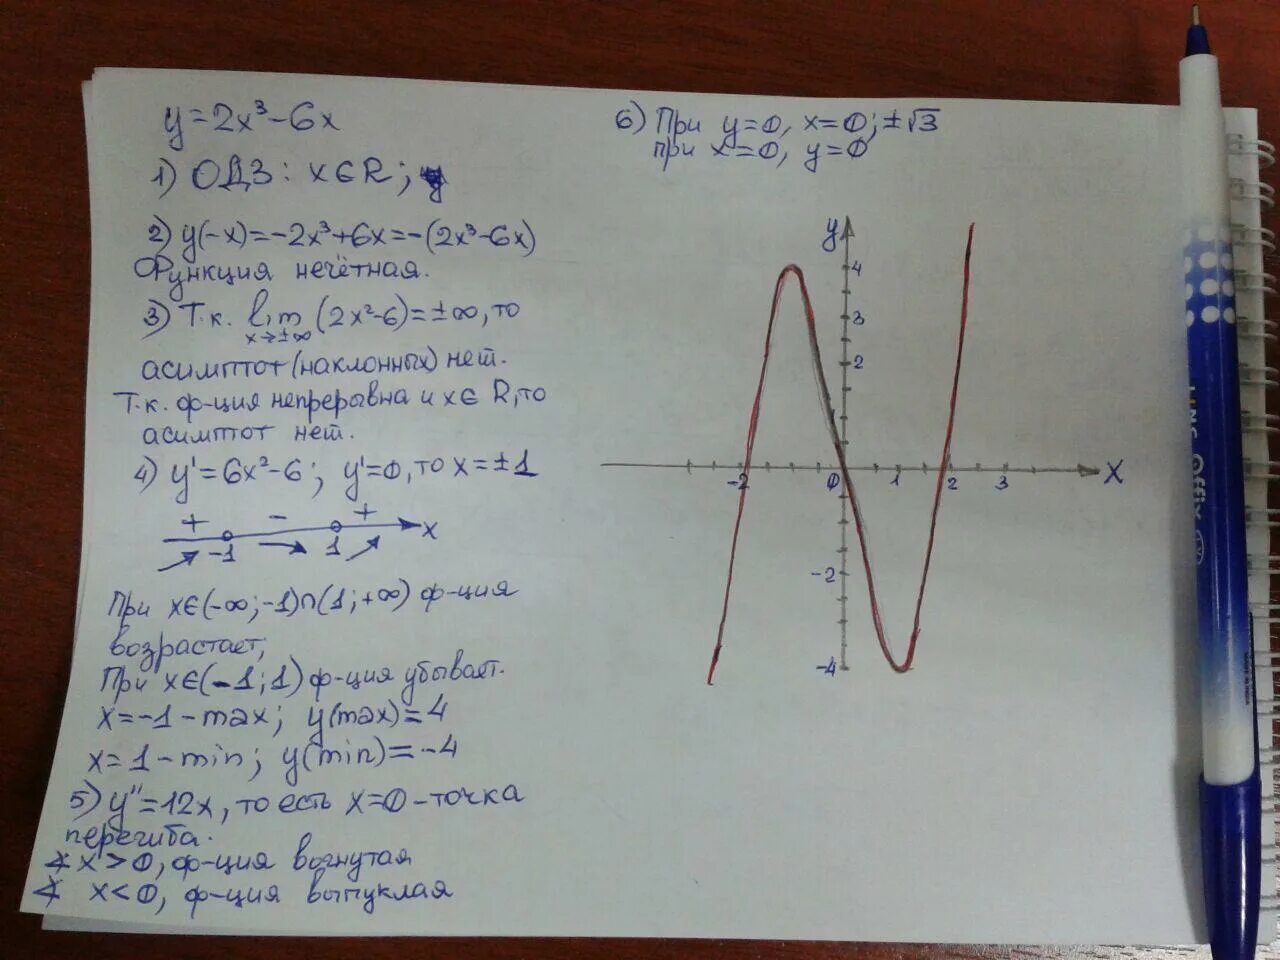 y=2x³-6x
1) ОДЗ: x∈R;
2) y(-x)=-2x³+6x=-(2x³-6x)
Функция нечётная.
3) Т.к. lim (2x²-6)=±∞, то
x→±∞
асимптот (наклонных) нет.
Т.к. ф-ция непрерывна и x∈R, то
асимптот нет.
4) y'=6x²-6; y'=0, то x=±1
+ - +
-1 1 x
При x∈(-∞;-1)∩(1;+∞) ф-ция
возрастает;
При x∈(-1;1) ф-ция убывает.
x=-1-max; y(max)=4
x=1-min; y(min)=-4
5) y''=12x, то есть x=0-точка
перегиба.
∢ x>0, ф-ция вогнутая
∢ x<0, ф-ция выпуклая
6) При y=0, x=0;±√3
при x=0, y=0
y
4
3
2
1
-2 0 1 2 3 X
-2
-4
LINC Offix